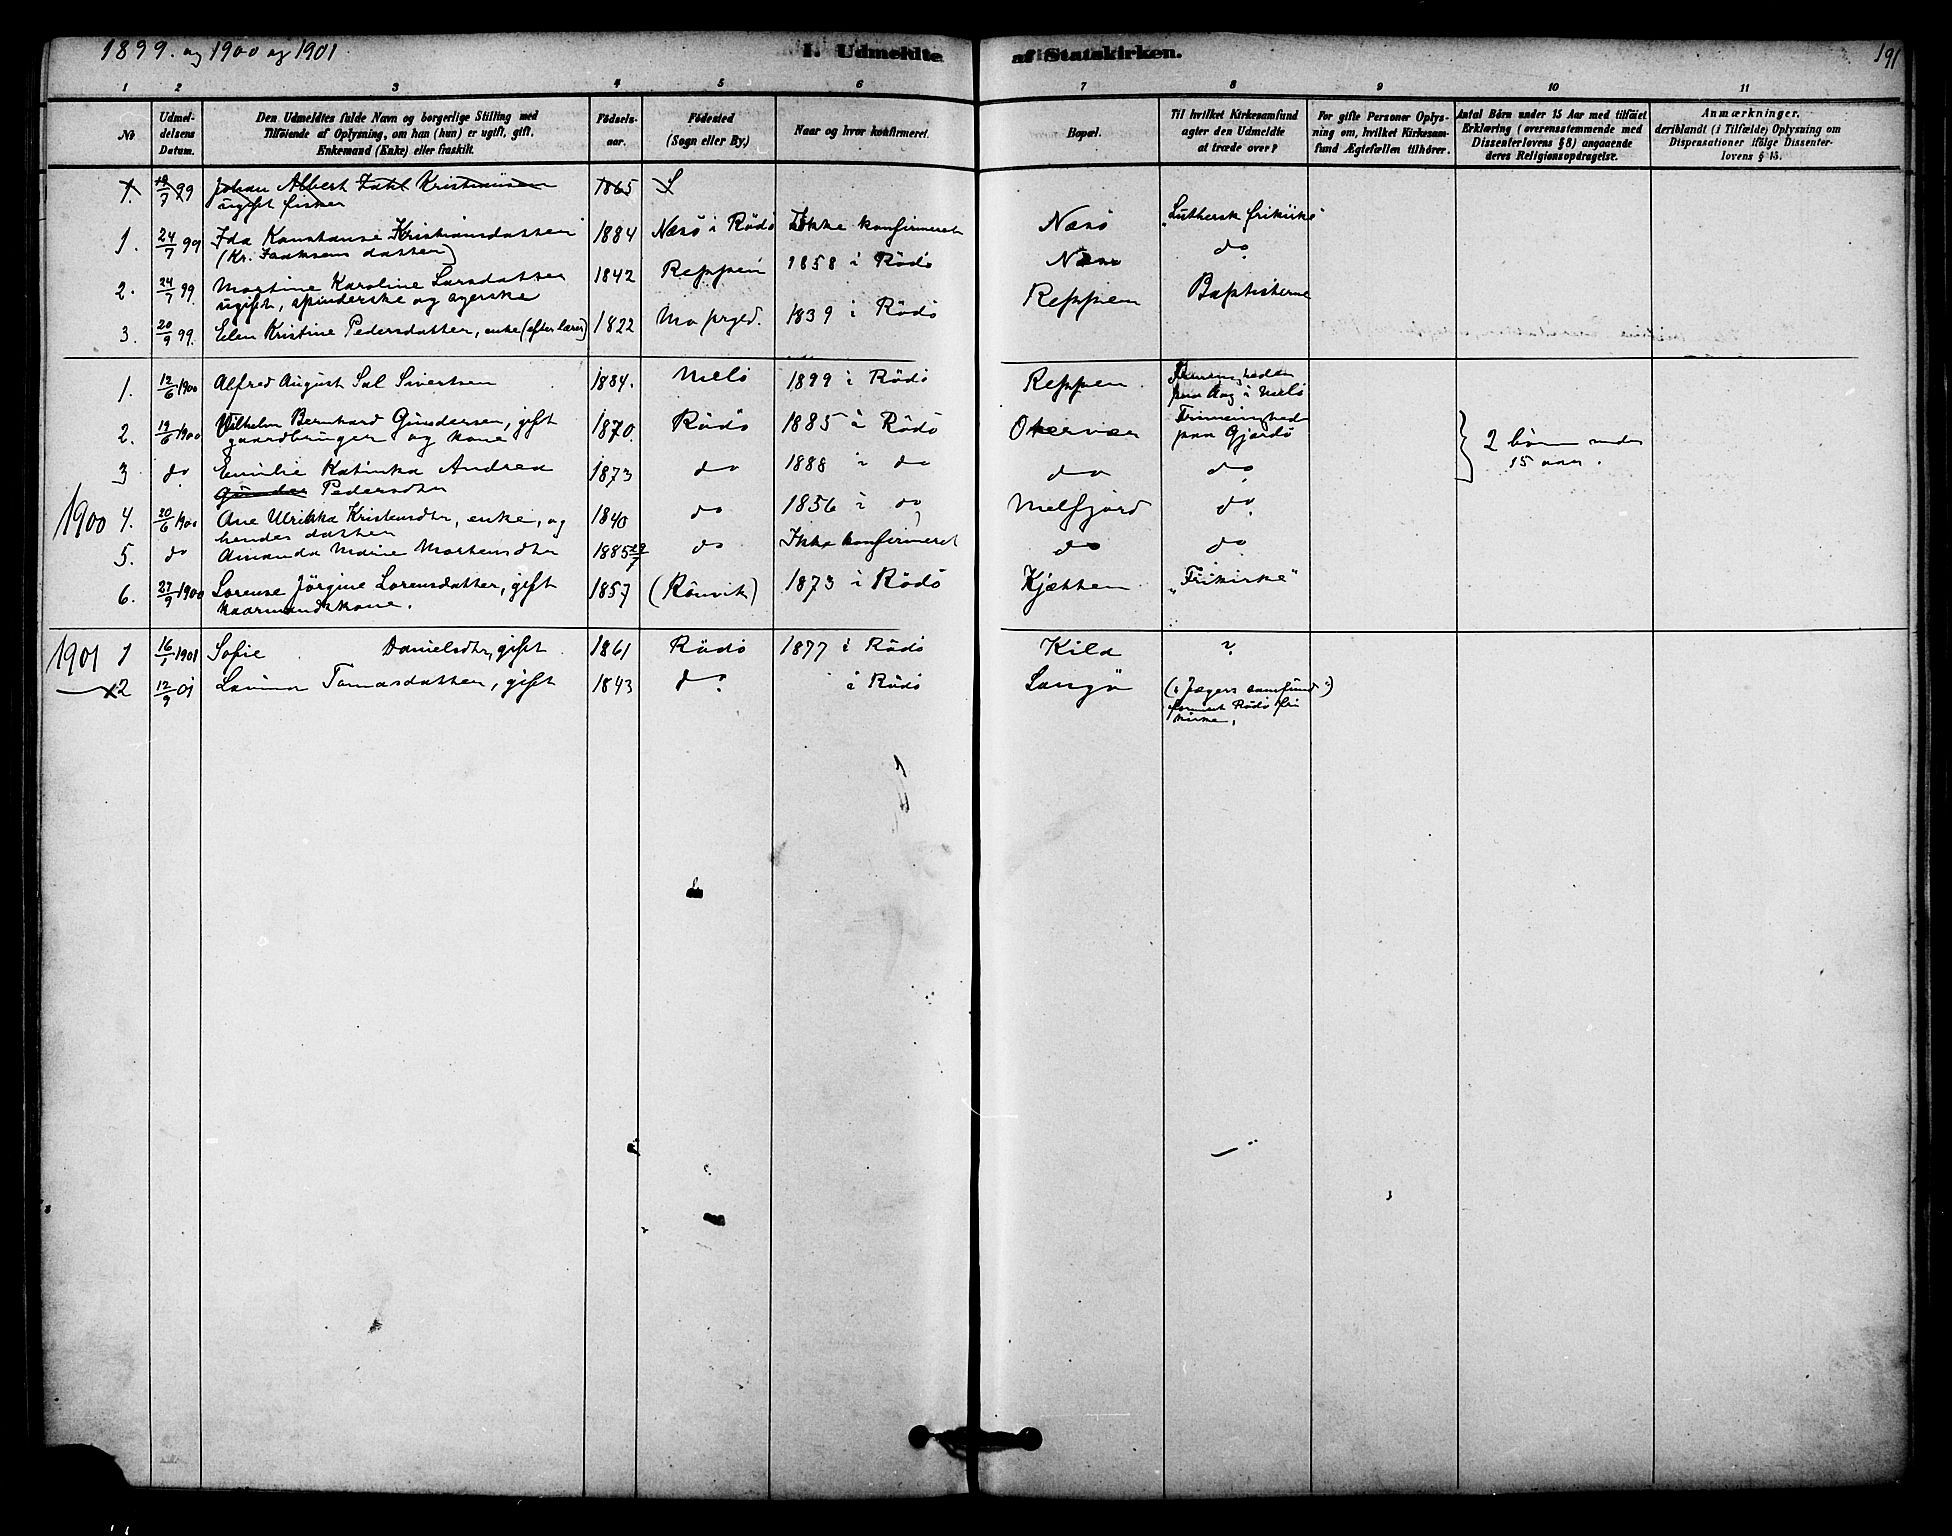 1899. og 1900 og 1901
I. Udmeldte af Statskirken.
191
1 2 3 4 5 6 7 8 9 10 11
No
Udmeldelsens Datum.
Den Udmeldtes fulde Navn og borgerlige Stilling med
Tilføiende af Oplysning, om han (hun) er ugift, gift,
Enkemand (Enke) eller fraskilt.
Fødselsaar.
Fødested
(Sogn eller By.)
Naar og hvor konfirmeret.
Bopæl.
Til hvilket Kirkesamfund
agter den Udmeldte
at træde over?
For gifte Personer Oplysning
om, hvilket Kirkesamfund
Ægtefællen tilhører.
Antal Børn under 15 Aar med tilføiet
Erklæring (overensstemmende med
Dissenterlovens § 8) angaaende
deres Religionsopdragelse.
Anmærkninger,
deriblandt (i Tilfælde) Oplysning om
Dispensationer ifølge Dissenterlovens
§ 13.
1. 99 Johan Albert Kristiansen 1865
ugift fisker
1. 24/7 99 Ida Konstanse Kristiansdatter 1884 Næsö i Rödö Ikke konfirmeret Næsö "Luthersk frikirke"
(Kr. Isaksens datter)
2. 24/7 99. Martine Karoline Larsdatter 1842 Reppen 1858 i Rödö do
ugift, spinderske og
3. 20/9 99. Elen Kristine Pedersdatter, enke (efter lærer) 1822 Mo prgld. 1839 i Rödö Reppen Baptisterne
1. 12/6 1900 Alfred August Sivertsen 1884. Melö 1899 i Rödö Reppen. i Melö
2. 19/6 1900 Vilhelm Bernhard Gundersen, gift 1870. Rödö 1885 i Rödö Otervær Frimenighed
gaardbruger og kone paa Gjærdö 2 börn under
15 aar.
3 do. Emilie Katinka Andrea 1873 do 1888 i do do do
Pedersdtr
1900 4. 20/6 1900 Ane Ulrikka Kristensdtr, enke, og 1840 do 1856 i do Melfjord do.
hendes datter
5. do Amanda Marie Mortensdtr 1885 do Ikke konfirmeret do do
6. 27/9 1900 Lorense Jörgine Lorensdatter, gift 1857 (Rönvik) 1873 i Rödö Kjetten "Frikirke"
kaarmandskone.
1901 1 16/1 1901 Sofie Danielsdtr, gift 1861 Rödö 1877 i Rödö Kila ?
2 12/9 01 Tomasdatter, gift 1843 do. i Rödö Selsöy
("Jægers samfund")
Rödö frikirke.